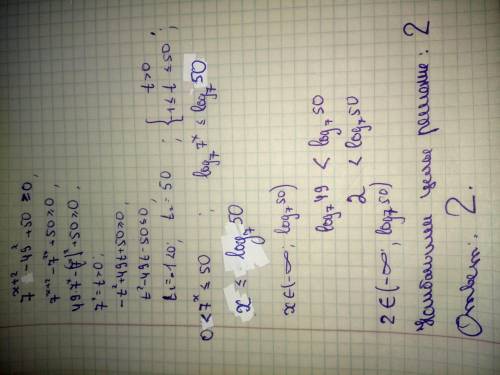 7^(x+2) - 49^x + 50 ≥ 0,
7^(x+2) - 7^(2x) + 50 ≥ 0
49·7^x - (7^x)² + 50 ≥ 0,
7^x = t > 0,
-t² + 49t + 50 ≥ 0,
t² - 49t - 50 ≤ 0
t₁ = -1 < 0; t₂ = 50; { t > 0 -1 ≤ t ≤ 50;
0 < 7^x ≤ 50; log₇ 7^x ≤ log₇ 50
x ≤ log₇ 50
x ∈ (-∞; log₇ 50)
log₇ 49 < log₇ 50
2 < log₇ 50
2 ∈ (-∞; log₇ 50)
Наибольшее целое решение: 2
Ответ: 2.